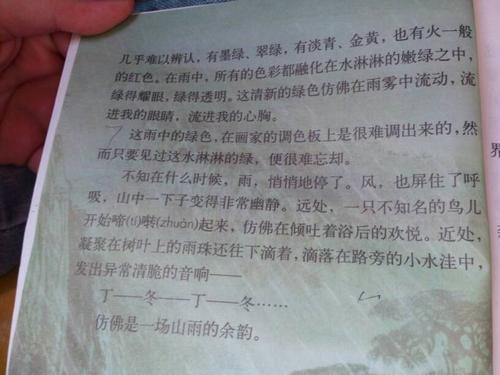 几乎难以辨认，有墨绿、翠绿，有淡青、金黄，也有火一般
的红色。在雨中，所有的色彩都融化在水淋淋的嫩绿之中，
绿得耀眼，绿得透明。这清新的绿色仿佛在雨雾中流动，流
进我的眼睛，流进我的心胸。
这雨中的绿色，在画家的调色板上是很难调出来的，然
而只要见过这水淋淋的绿，便很难忘却。
不知在什么时候，雨，悄悄地停了。风，也屏住了呼
吸，山中一下子变得非常幽静。远处，一只不知名的鸟儿
开始啼(tí)啭(zhuàn)起来，仿佛在倾吐着浴后的欢悦。近处，
凝聚在树叶上的雨珠还往下滴着，滴落在路旁的小水洼中，
发出异常清脆的音响——
丁——冬——丁——冬……
仿佛是一场山雨的余韵。
界